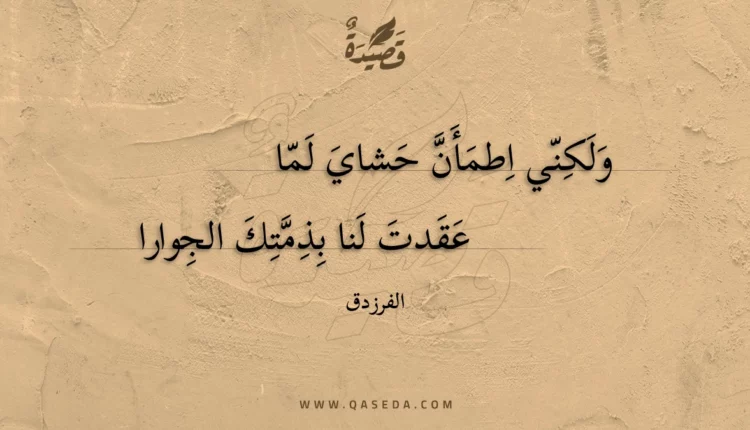 قَصِيدَةٌ
وَلَكِنّي اِطمَأَنَّ حَشايَ لَمّا
عَقَدتَ لَنا بِذِمَّتِكَ الجِوارا
الفرزدق
WWW.QASEDA.COM